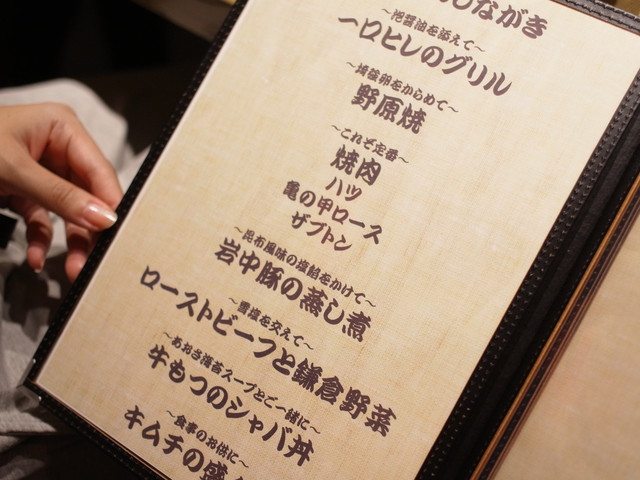 しながき
～泡醤油を添えて～
一口ヒレのグリル
卵をからめて～
野原焼
～これぞ定番～
焼肉
ハツ
亀の甲ロース
ザブトン
～昆布風味の塩餡をかけて～
岩中豚の蒸し煮
～雪塩を交えて～
ローストビーフと鎌倉野菜
～あおさ海苔スープとご一緒に～
牛もつのシャバ丼
～食事のお供に～
キムチの盛